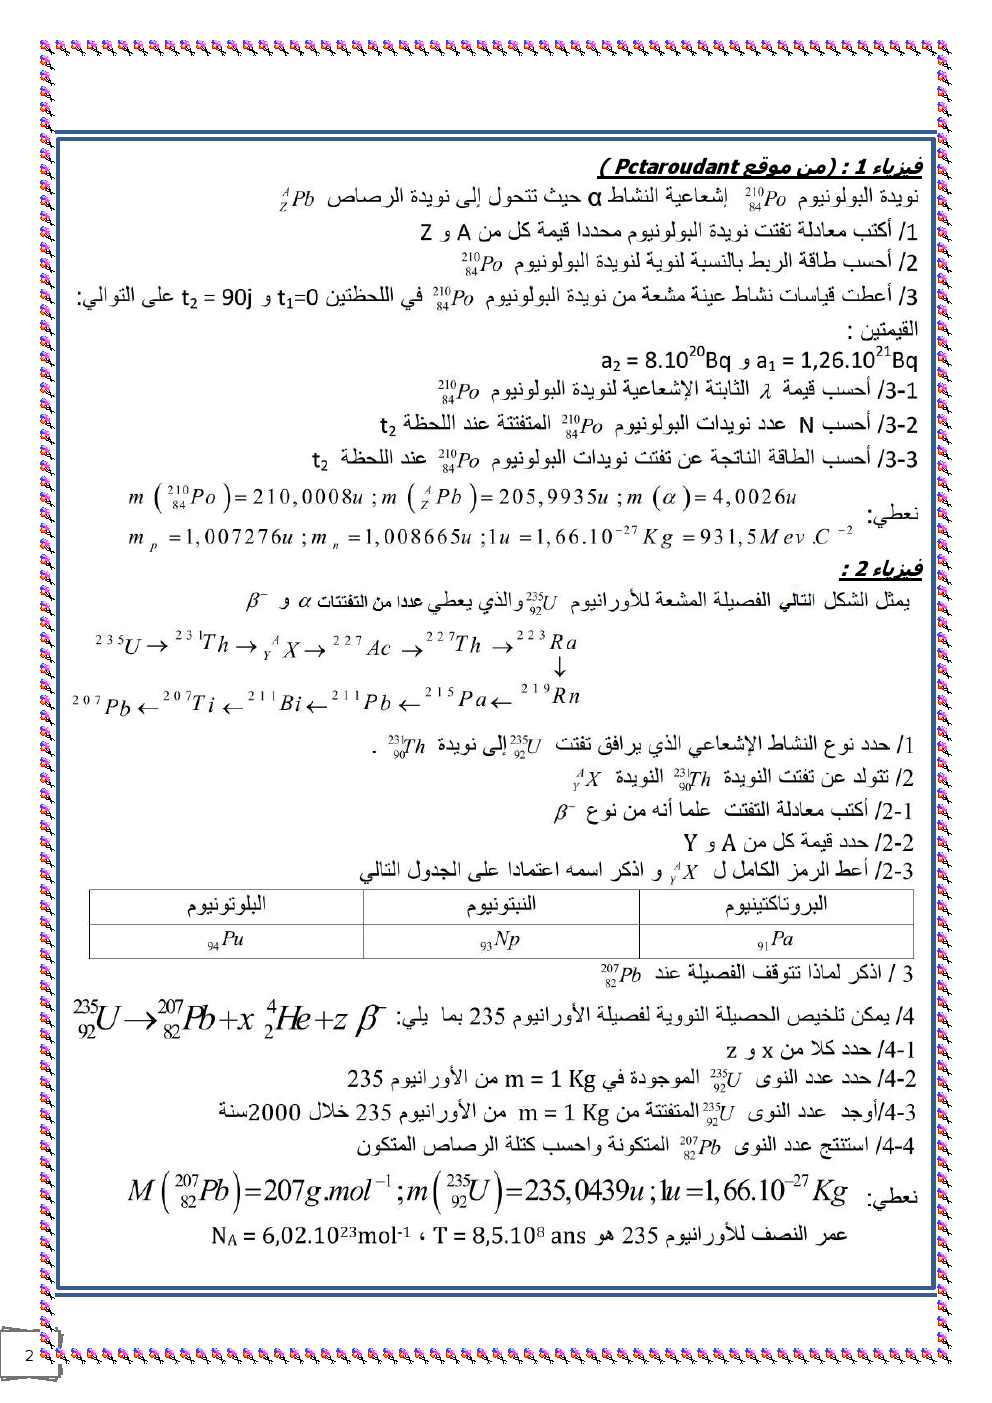 فيزياء 1 : (من موقع Pctaroudant )
نويدة البولونيوم $^{210}_{84}Po$ إشعاعية النشاط α حيث تتحول إلى نويدة الرصاص $^{A}_{Z}Pb$
1/ أكتب معادلة تفتت نويدة البولونيوم محددا قيمة كل من A و Z
2/ أحسب طاقة الربط بالنسبة لنوية لنويدة البولونيوم $^{210}_{84}Po$
3/ أعطت قياسات نشاط عينة مشعة من نويدة البولونيوم $^{210}_{84}Po$ في اللحظتين t₁=0 و t₂ = 90j على التوالي:
القيمتين :
a₁ = 1,26.10²¹Bq و a₂ = 8.10²⁰Bq
3-1/ أحسب قيمة λ الثابتة الإشعاعية لنويدة البولونيوم $^{210}_{84}Po$
3-2/ أحسب N عدد نويدات البولونيوم $^{210}_{84}Po$ المتفتتة عند اللحظة t₂
3-3/ أحسب الطاقة الناتجة عن تفتت نويدات البولونيوم $^{210}_{84}Po$ عند اللحظة t₂
$m(^{210}_{84}Po)=210,0008u ; m(^{A}_{Z}Pb)=205,9935u ; m(\alpha)=4,0026u$
نعطي:
$m_p=1,007276u ; m_n=1,008665u ; 1u=1,66.10^{-27}Kg=931,5Mev.C^{-2}$
فيزياء 2 :
يمثل الشكل التالي الفصيلة المشعة للأورانيوم $^{235}_{92}U$ والذي يعطي عددا من التفتتات α و β⁻
$^{235}U → ^{231}Th → ^{A}_{Y}X → ^{227}Ac → ^{227}Th → ^{223}Ra$
↓
$^{207}Pb ← ^{207}Ti ← ^{211}Bi ← ^{211}Pb ← ^{215}Pa ← ^{219}Rn$
1/ حدد نوع النشاط الإشعاعي الذي يرافق تفتت $^{235}_{92}U$ إلى نويدة $^{231}_{90}Th$ .
2/ تتولد عن تفتت النويدة $^{231}_{90}Th$ النويدة $^{A}_{Y}X$
2-1/ أكتب معادلة التفتت علما أنه من نوع β⁻
2-2/ حدد قيمة كل من A و Y
2-3/ أعط الرمز الكامل ل $^{A}_{Y}X$ و اذكر اسمه اعتمادا على الجدول التالي
البروتاكتينيوم النبتونيوم البلوتونيوم
$_{91}Pa$ $_{93}Np$ $_{94}Pu$
3 / اذكر لماذا تتوقف الفصيلة عند $^{207}_{82}Pb$
4/ يمكن تلخيص الحصيلة النووية لفصيلة الأورانيوم 235 بما يلي: $^{235}_{92}U → ^{207}_{82}Pb + x\,^{4}_{2}He + z\,β^-$
4-1/ حدد كلا من x و z
4-2/ حدد عدد النوى $^{235}_{92}U$ الموجودة في m = 1 Kg من الأورانيوم 235
4-3/أوجد عدد النوى $^{235}_{92}U$ المتفتتة من m = 1 Kg من الأورانيوم 235 خلال 2000سنة
4-4/ استنتج عدد النوى $^{207}_{82}Pb$ المتكونة واحسب كتلة الرصاص المتكون
نعطي: $M(^{207}_{82}Pb)=207g.mol^{-1} ; m(^{235}_{92}U)=235,0439u ; 1u=1,66.10^{-27}Kg$
عمر النصف للأورانيوم 235 هو T = 8,5.10⁸ ans ، N_A = 6,02.10²³mol⁻¹
2